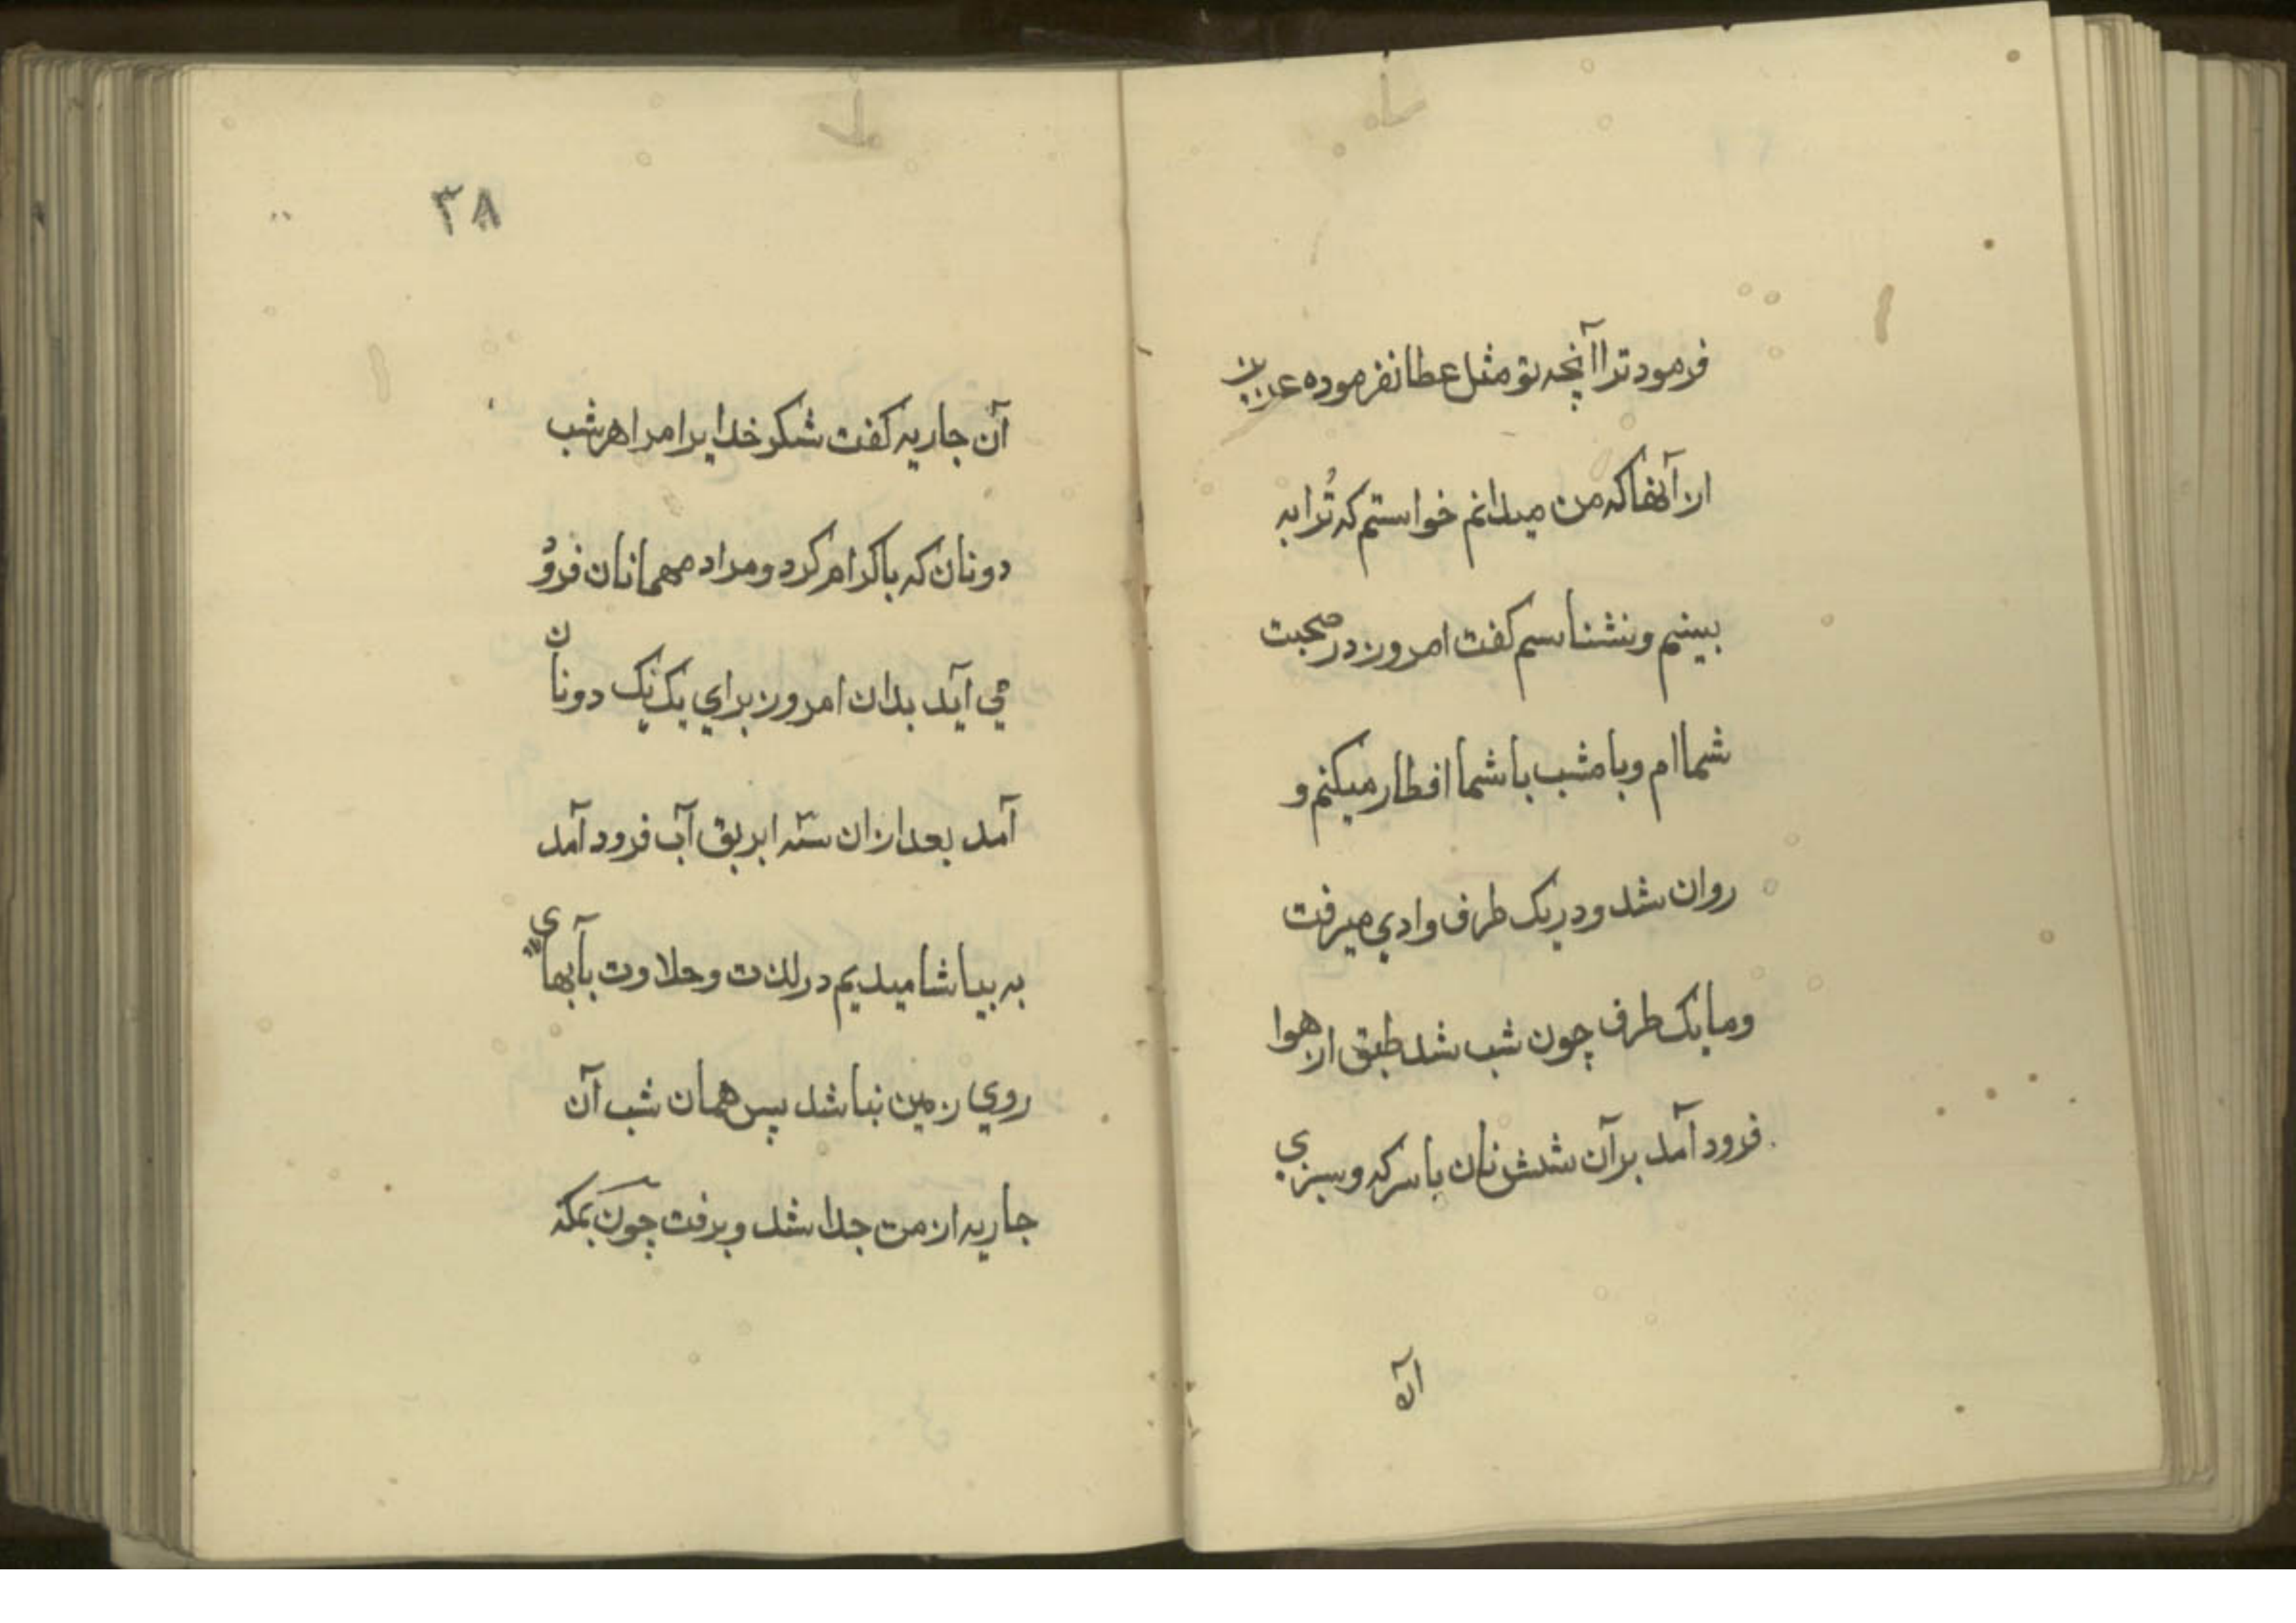 فرمود ترا آنچه بتو مثل عطا نفرموده عزیزن
از آنها که من میدانم خواستم که تُرا به
بینیم و بنشناسیم کفت امروز در صحبت
شما ام و با مشب با شما افطار میکنم و
روان شد و در یک طرف وادي میرفت
وما یک طرف چون شب شد طبق از هوا
فرود آمد بر آن شش نان با سرکه و سبزي
آن
۳۸
آن جاریه کفت شکر خدا یرا مرا هر شب
دونان که باکرام کرد و مراد مهمانان فروُ
مي آید بدان امروز براي یک یک دونان
آمد بعد ازان سه ابریق آب فرود آمد
به بیاشامیدیم در لذت و حلاوت بآبهاي
روي زمین نباشد پس همان شب آن
جاریه از من جدا شد و برفت چون بمکه